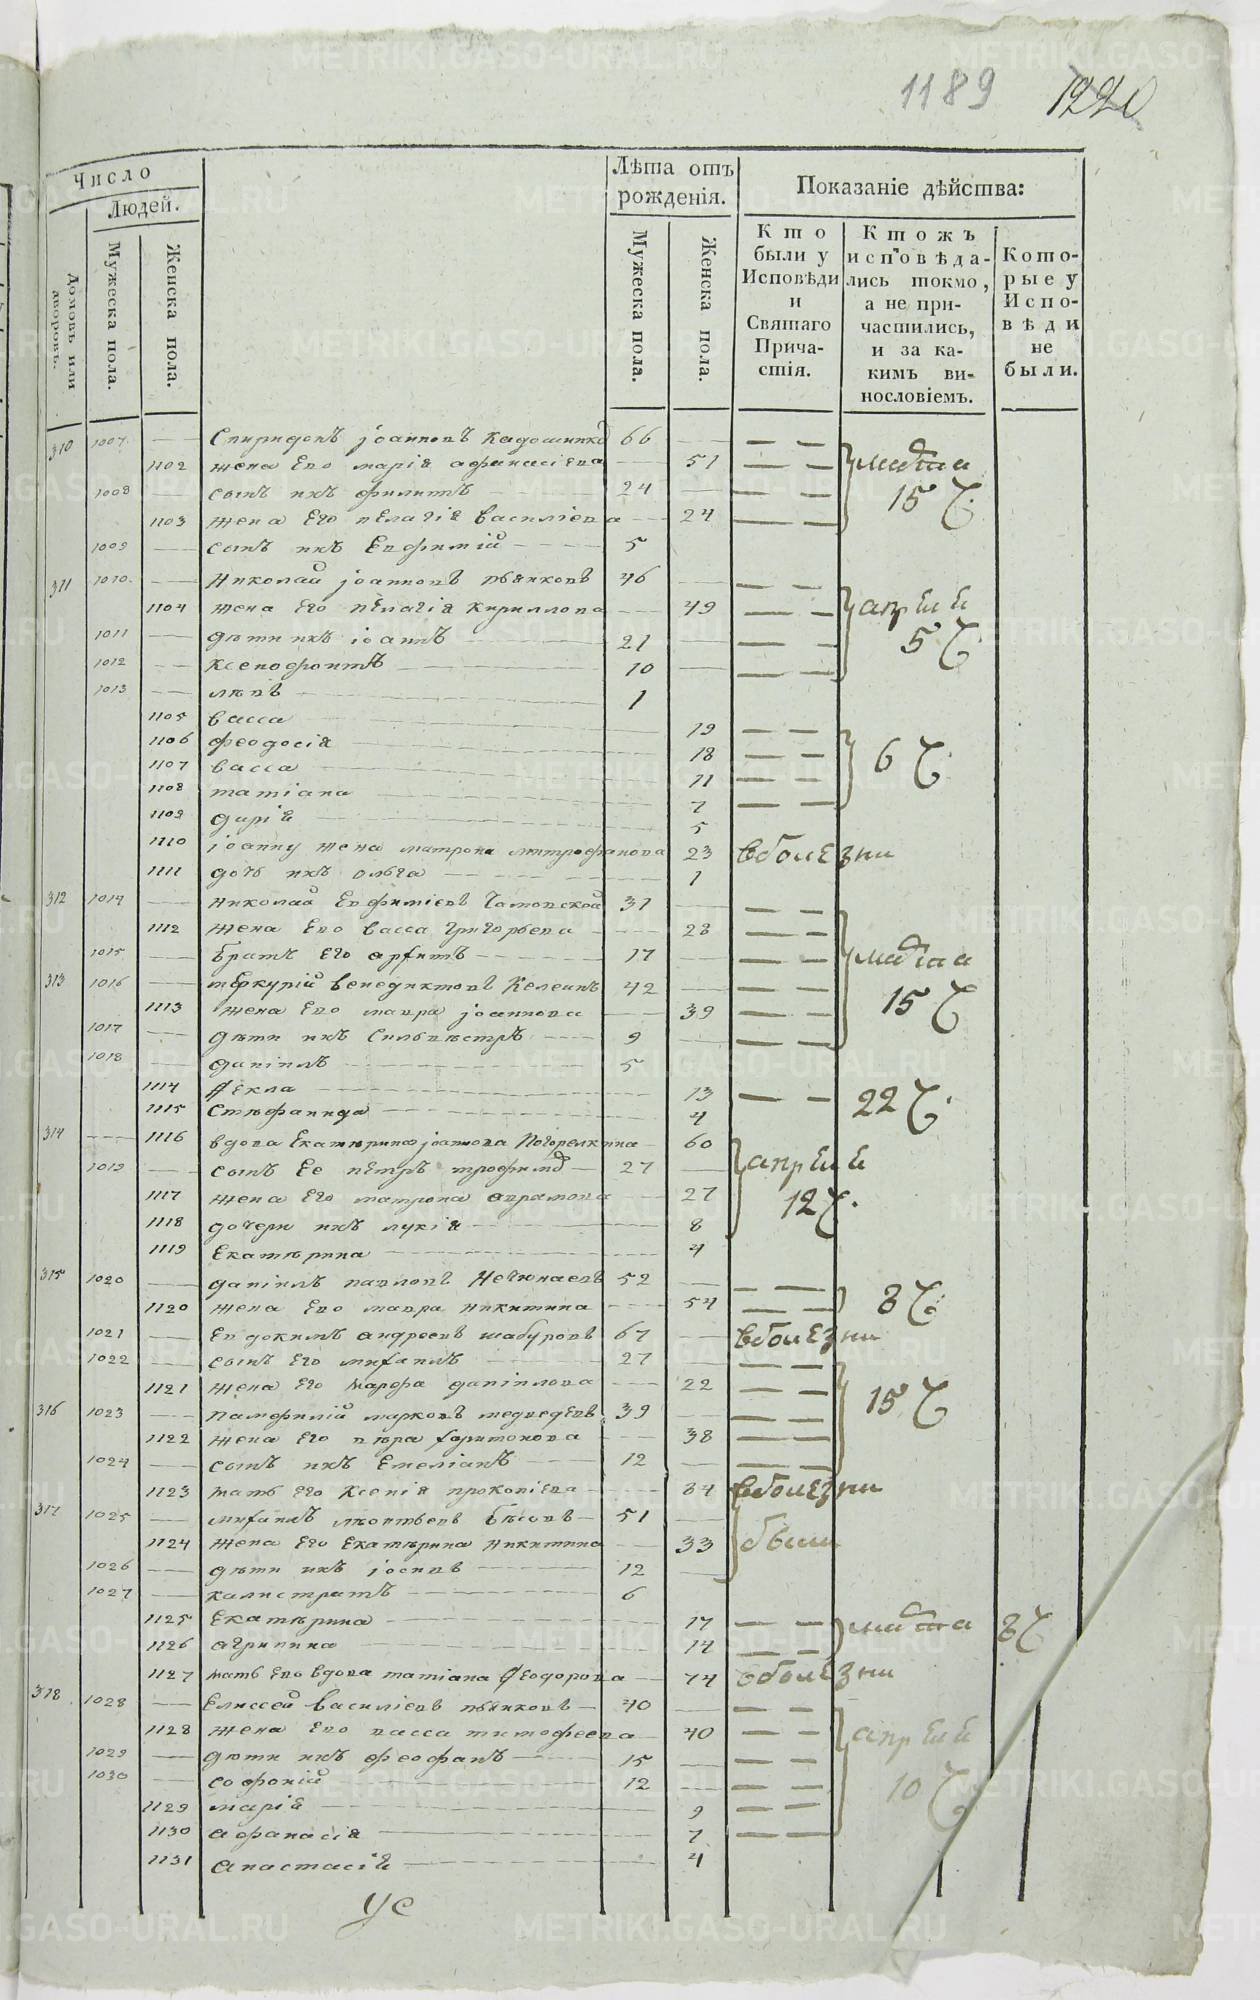 1189 1220
Число
Людей.
Домовъ или дворовъ.
Мужеска пола.
Женска пола.
Лѣта отъ рожденія.
Мужеска пола.
Женска пола.
Показаніе дѣйства:
Кто были у Исповѣди и Святаго Прича-стія.
Ктожъ исповѣда-лись токмо, а не при-частились, и за ка-кимъ ви-нословіемъ.
Кото-рые у Испо-вѣди не были.
310 1007 Спиридонъ Іоанновъ 66
1102 жена Его марія афанасіева 51 марта
1008 сынъ ихъ филипъ 24 15 Ч.
1103 жена Его пелагія василіева 24
1009 сынъ ихъ Евфимій 5
311 1010 Николай іоанновъ пьянковъ 46
1104 жена Его пелагія кириллова 49 апреля
1011 дѣти ихъ іоаннъ 21 5 Ч
1012 ксенофонтъ 10
1013 левъ 1
1105 васса 19
1106 феодосія 18 6 Ч
1107 васса 11
1108 татіана 7
1109 дарія 5
1110 іоанну жена матрона митрофанова 23 вболезни
1111 дочь ихъ ольга 1
312 1014 николай Евфиміевъ 31
1112 жена Его васса григорьева 28
1015 братъ Его архипъ 17 марта
313 1016 меркурій венедиктовъ Келеинъ 42 15 Ч
1113 жена Его мавра іоаннова 39
1017 дѣти ихъ Сильвестръ 9
1018 даніилъ 5
1114 фекла 13 22 Ч.
1115 Стефанида 4
314 1116 вдова Екатерина іоаннова Погорелкина 60
1019 сынъ Ее петръ трофимовъ 27 апреля
1117 жена Его матрона аврамова 27 12 Ч.
1118 дочери ихъ лукія 8
1119 Екатерина 4
315 1020 даніилъ павловъ 52
1120 жена Его мавра никитина 54 8 Ч
1021 Евдокимъ андреевъ шабуровъ 67 вболезни
1022 сынъ Его михаилъ 27
1121 жена Его марфа даніилова 22 15 Ч
316 1023 памфилій марковъ медведевъ 39
1122 жена Его вера харитонова 38
1024 сынъ ихъ Емеліанъ 12
1123 мать Его Ксенія прокопіева 84 вболезни
317 1025 михаилъ леонтьевъ 51
1124 жена Его Екатерина никитина 33 были
1026 дѣти ихъ іосифъ 12
1027 калистратъ 6
1125 Екатерина 17 марта 8 Ч
1126 агрипина 14
1127 мать Его вдова татіана феодорова 74 вболезни
318 1028 Елиссей василіевъ пьянковъ 40
1128 жена Его васса тимофеева 40 апреля
1029 дѣти ихъ феофанъ 15
1030 софоній 12 10 Ч
1129 марія 9
1130 афанасія 7
1131 анастасія 4